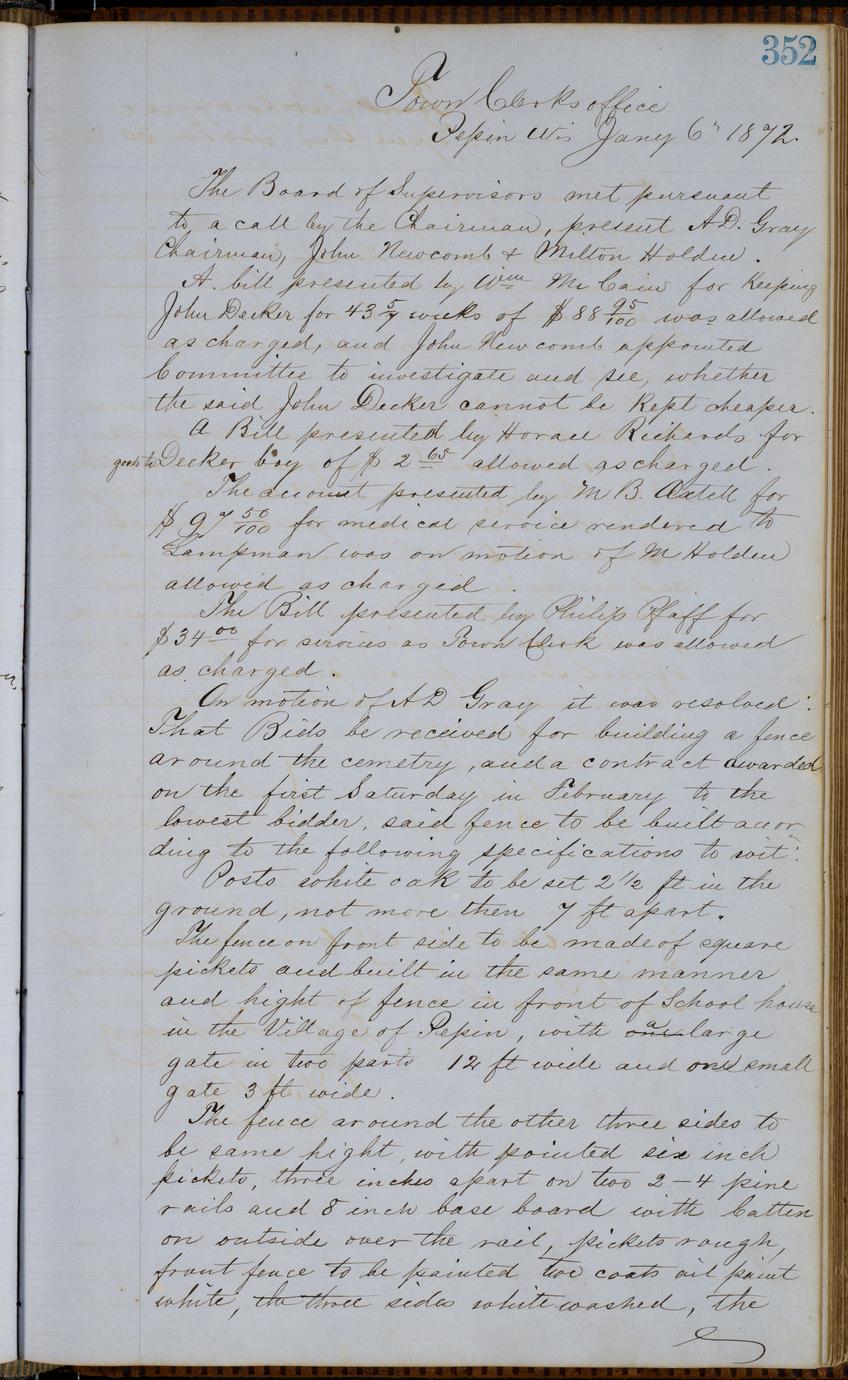 352
Town Clerks office
Pepin Wis Jany 6th 1872.
The Board of Supervisors met pursuant
to a call by the Chairman, present A.D. Gray
Chairman, John Newcomb & Milton Holden.
A. bill presented by Wm McCain for Keeping
John Decker for 43 5/7 weeks of $88 95/100 was allowed
as charged, and John Newcomb appointed
Committee to investigate and see, whether
the said John Decker cannot be Kept cheaper.
A Bill presented by Horace Richards for
goods to Decker boy of $2 65 allowed as charged.
The account presented by M B. Axtell for
$97 50/100 for medical service rendered to
Lampman was on motion of M Holden
allowed as charged.
The Bill presented by Philip Pfaff for
$34 00 for services as Town Clerk was allowed
as charged.
On motion of A D Gray it was resolved:
That Bids be received for building a fence
around the cemetry, and a contract awarded
on the first Saturday in February to the
lowest bidder, said fence to be built accor
ding to the following specifications to wit:
Posts white oak to be set 2 1/2 ft in the
ground, not more then 7 ft apart.
The fence on front side to be made of square
pickets and built in the same manner
and hight of fence in front of School house
in the Village of Pepin, with one a large
gate in two parts 12 ft wide and one small
gate 3 ft wide.
The fence around the other three sides to
be same hight, with pointed six inch
pickets, three inches apart on two 2-4 pine
rails and 8 inch base board with batten
on outside over the rail, pickets rough,
front fence to be painted two coats oil paint
white, the three sides whitewashed, the